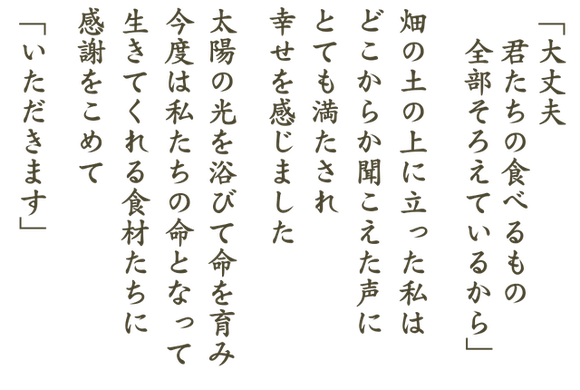 「大丈夫
君たちの食べるもの
全部そろえているから」
畑の土の上に立った私は
どこからか聞こえた声に
とても満たされ
幸せを感じました
太陽の光を浴びて命を育み
今度は私たちの命となって
生きてくれる食材たちに
感謝をこめて
「いただきます」